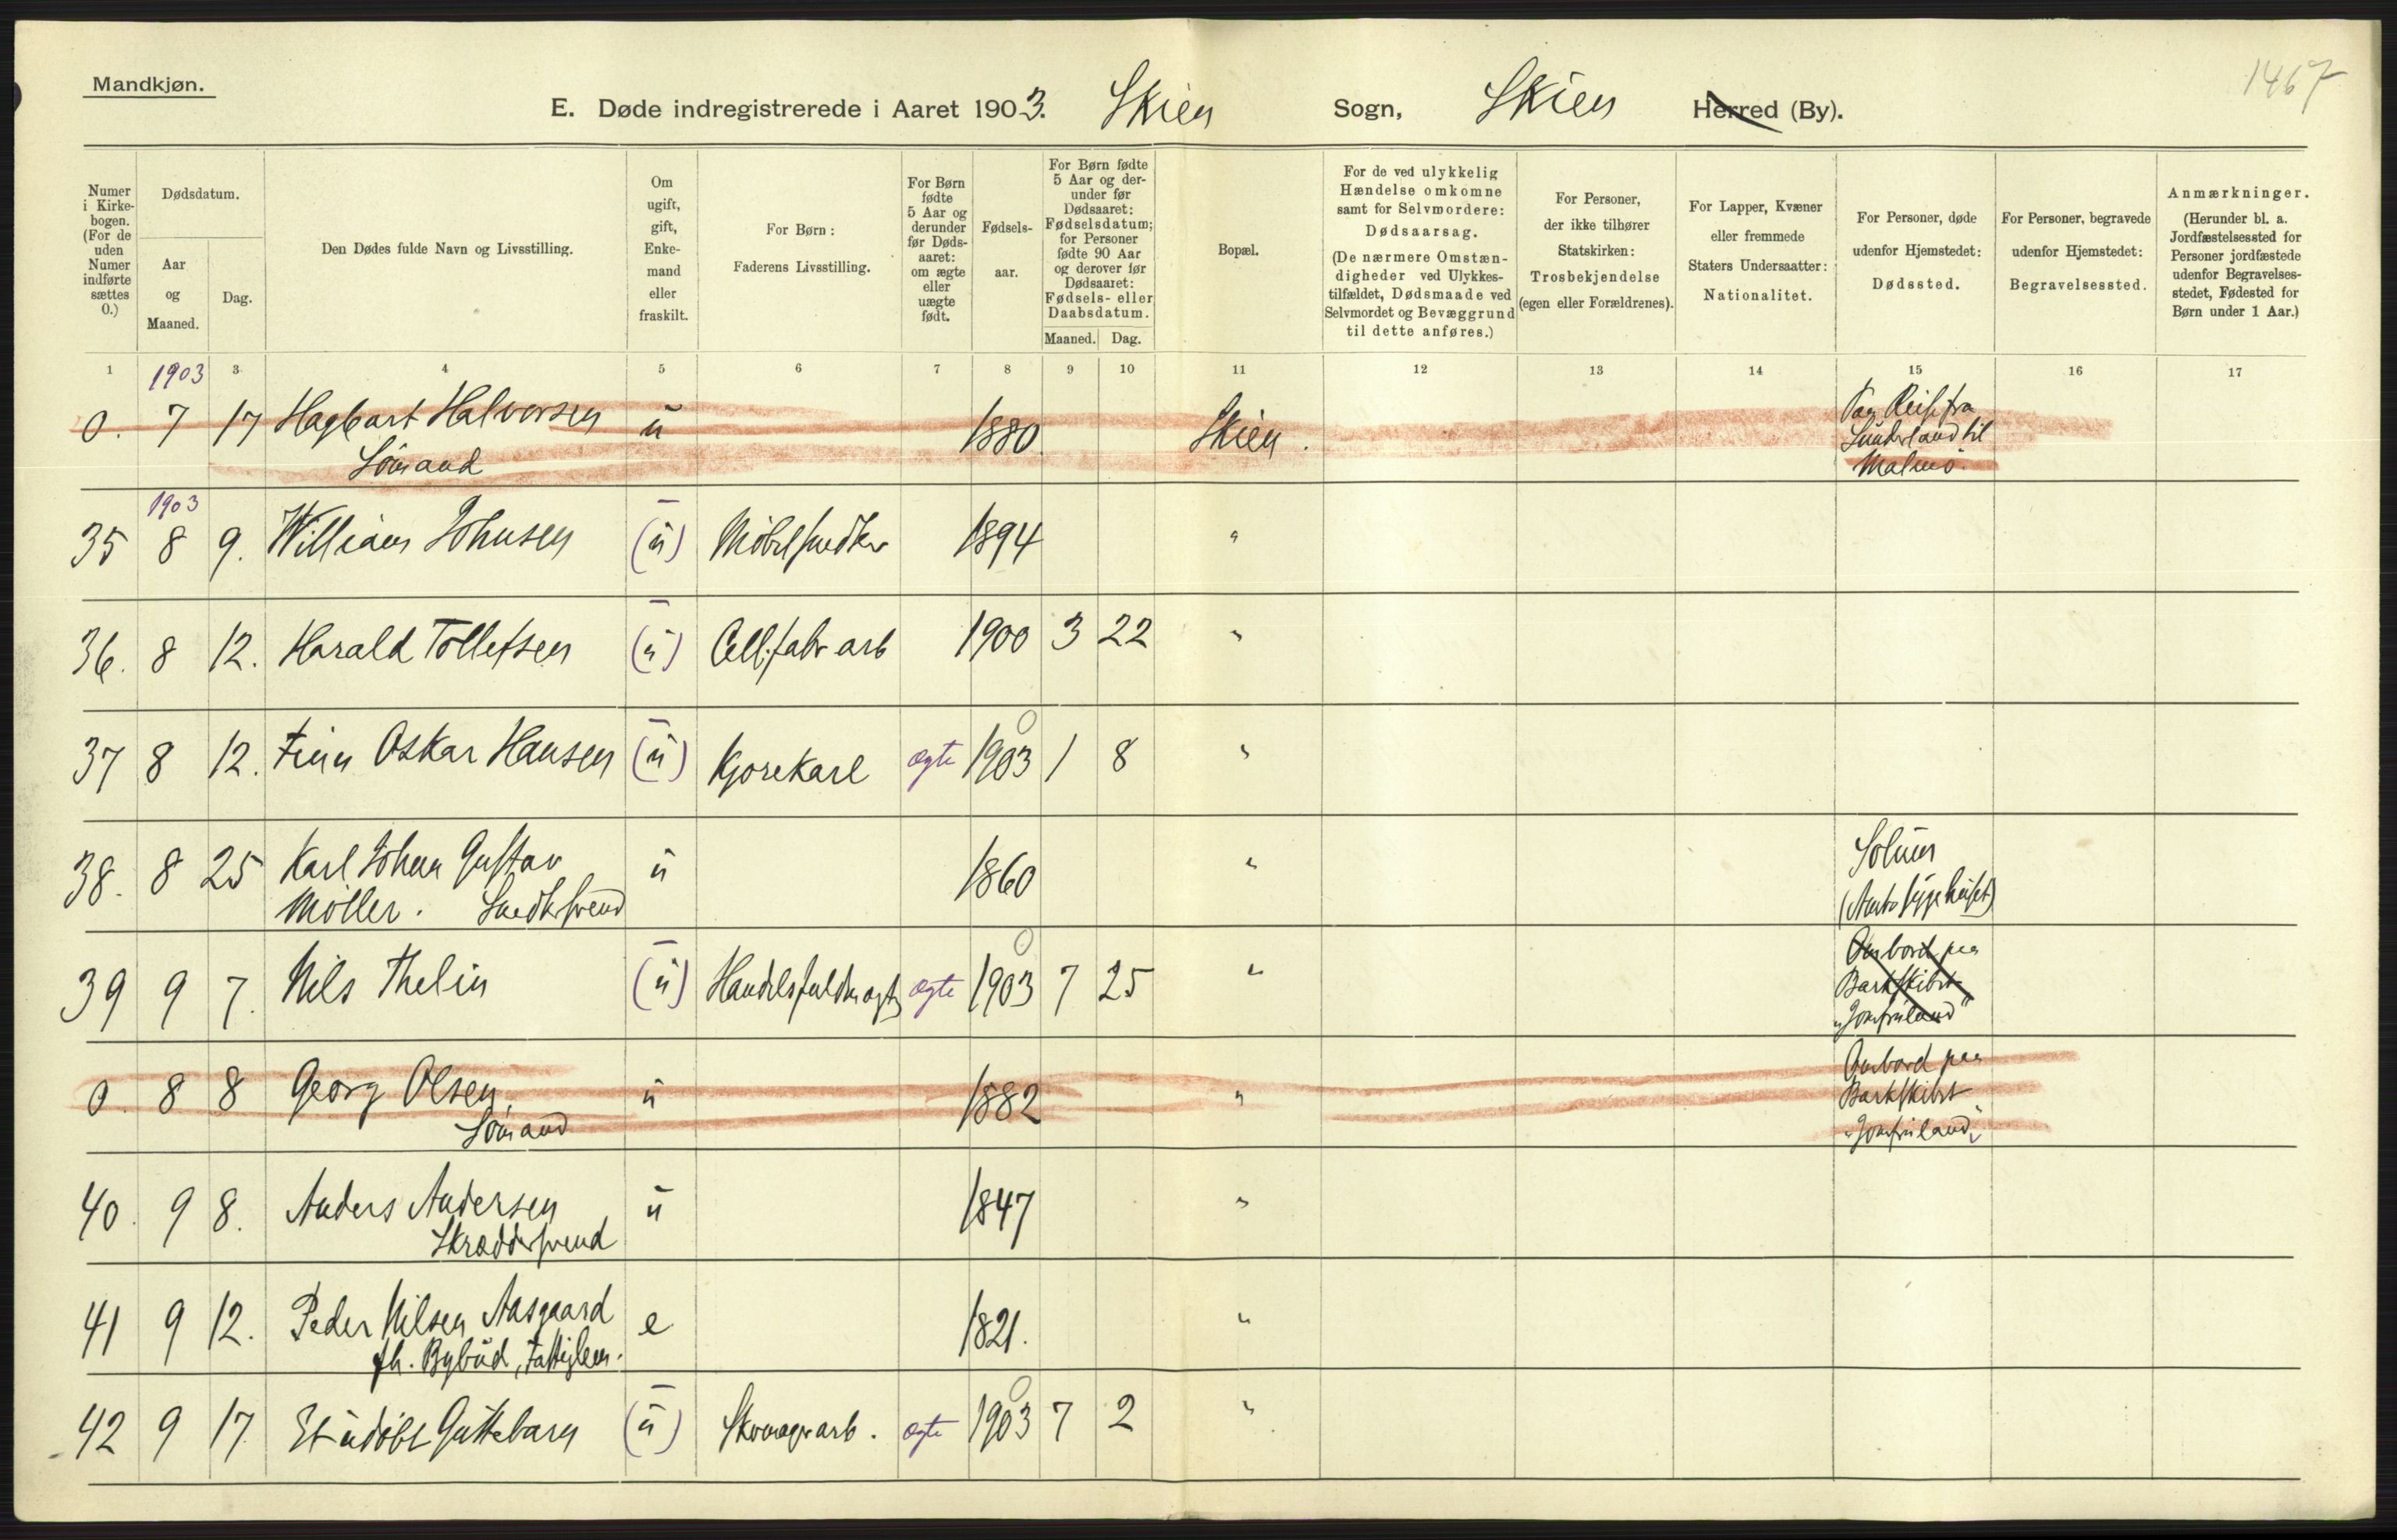 Mandkjøn.
1467
E. Døde indregistrerede i Aaret 1903. Skien Sogn, Skien Herred (By).
Numer i Kirke-bogen. (For de uden Numer indførte sættes 0.)
Dødsdatum.
Aar og Maaned.
Dag.
Den Dødes fulde Navn og Livsstilling.
Om ugift, gift, Enke-mand eller fraskilt.
For Børn: Faderens Livsstilling.
For Børn fødte 5 Aar og derunder før Døds-aaret: om ægte eller uægte født.
Fødsels-aar.
For Børn fødte 5 Aar og der-under før Dødsaaret: Fødselsdatum; for Personer fødte 90 Aar og derover før Dødsaaret: Fødsels- eller Daabsdatum.
Maaned. Dag.
Bopæl.
For de ved ulykkelig Hændelse omkomne samt for Selvmordere: Dødsaarsag. (De nærmere Omstæn-digheder ved Ulykkes-tilfældet, Dødsmaade ved Selvmordet og Bevæggrund til dette anføres.)
For Personer, der ikke tilhører Statskirken: Trosbekjendelse (egen eller Forældrenes).
For Lapper, Kvæner eller fremmede Staters Undersaatter: Nationalitet.
For Personer, døde udenfor Hjemstedet: Dødssted.
For Personer, begravede udenfor Hjemstedet: Begravelsessted.
Anmærkninger. (Herunder bl. a. Jordfæstelsessted for Personer jordfæstede udenfor Begravelses-stedet, Fødested for Børn under 1 Aar.)
1 3 4 5 6 7 8 9 10 11 12 13 14 15 16 17
1903
0. 7 17 Hagbart Halvorsen ü 1880. Skien. Paa Reise fra
Sømand Sunderland til
Malmö.
1903
35 8 9. William Johnsen (ü) Möbelsnedker 1894 "
36. 8 12. Harald Tollefsen (ü) Cell.fabr arb 1900 3 22 "
37 8 12. Finn Oskar Hansen (ü) Kjørekarl ægte 1903 1 8 "
0
38. 8 25 Karl Johan Gustav ü 1860 " Solum
Möller. Snedkersvend (Amtssygehuset)
39 9 7. Nils Thelin (ü) Handelsfuldmægtig ægte 1903 7 25 " Ombord paa
0 Barkskibet
"Jomfruland"
0. 8 8 Georg Olsen, ü 1882 " Ombord paa
Sømand Barkskibet
"Jomfruland"
40. 9 8. Anders Andersen ü 1847 "
Skræddersvend
41 9 12. Peder Nilsen Aasgaard e 1821. "
fh. Bybud, Fattiglem.
42 9 17 Et udöbt Guttebarn (ü) ægte 1903 7 2 "
0